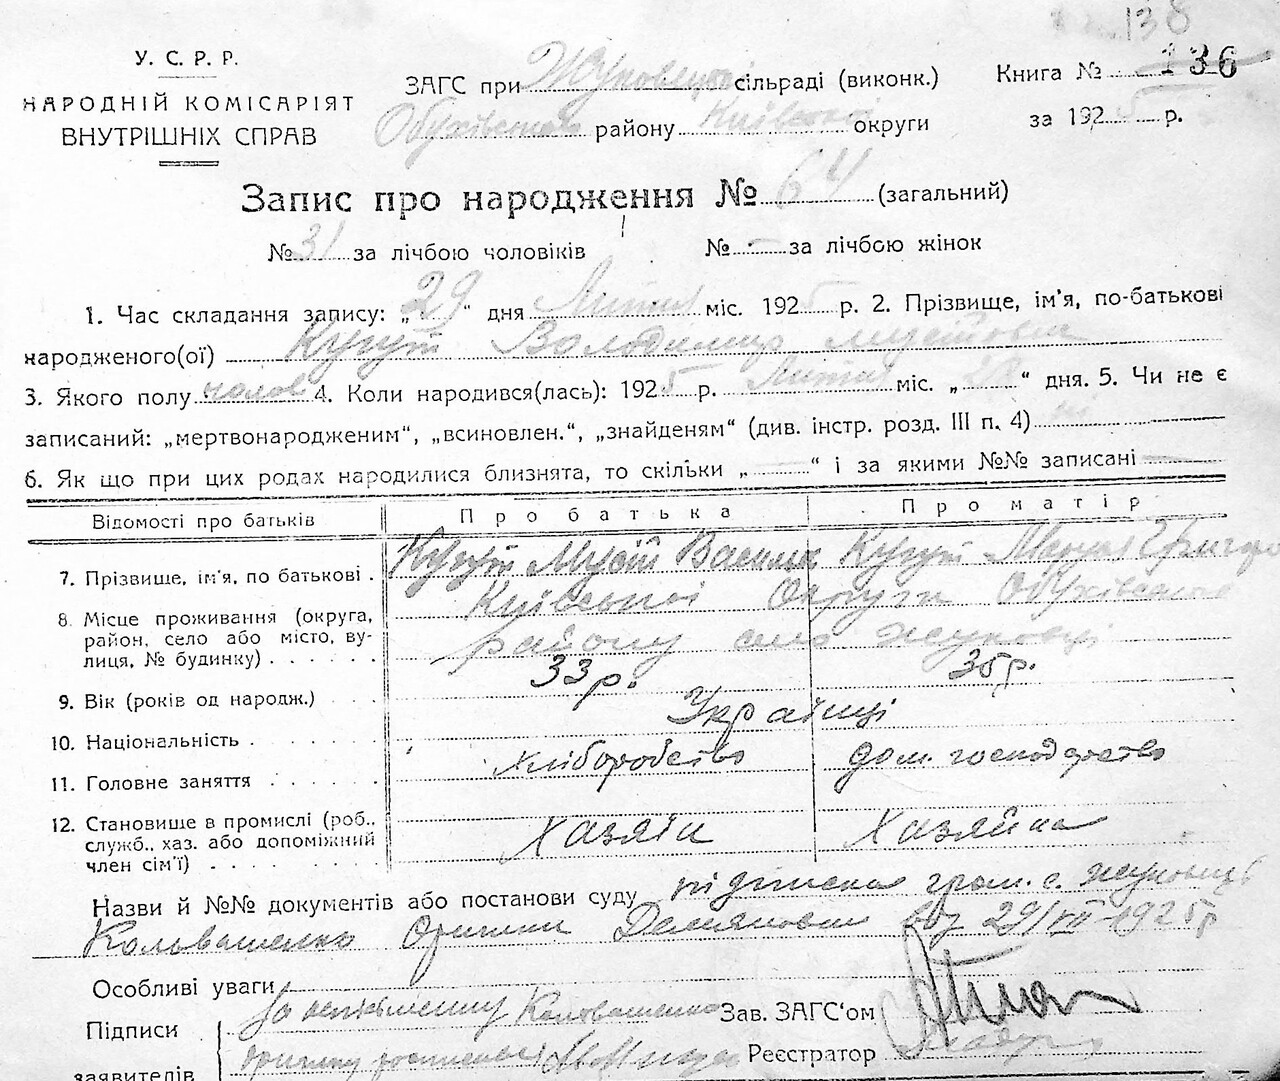 138
У. С. Р. Р.
НАРОДНІЙ КОМІСАРІЯТ
ВНУТРІШНІХ СПРАВ
ЗАГС при Жуковецькі сільраді (виконк.)
Обухівського району Київської округи
Книга № 136
за 1925 р.
Запис про народження № 64 (загальний)
№ 31 за лічбою чоловіків № - за лічбою жінок
1. Час складання запису: „29“ дня Липня міс. 1925 р. 2. Прізвище, ім'я, по-батькові
народженого(ої) Кугут Володимир
3. Якого полу чолов 4. Коли народився(лась): 1925 р. Липня міс. „28“ дня. 5. Чи не є
записаний: „мертвонародженим“, „всиновлен.“, „знайденям“ (див. інстр. розд. III п. 4) ні
6. Як що при цих родах народилися близнята, то скільки „ — “ і за якими №№ записані —
Відомості про батьків Про батька Про матір
7. Прізвище, ім'я, по батькові . Кугут Мусій Василь Кугут Григор
8. Місце проживання (округа, район, село або місто, ву-лиця, № будинку) . . . . . . Київської Округи Обухівського
району село Жуковці
9. Вік (років од народж.) . . . 33 р. 35 р.
10. Національність . . . . . . Українці
11. Головне заняття . . . . . . хліборобство дом. господарство
12. Становище в промислі (роб., служб., хаз. або допоміжний член сім'ї) . . . . . . . . Хазяін Хазяйка
Назви й №№ документів або постанови суду підписка гром. с. Жуковці
Кальвашенко Оришки Демяновни від 29/VII-1925 р
Особливі уваги
Підписи
заявителів
За неписьменну Кальвашенко
Оришку
Зав. ЗАГС'ом
Реєстратор